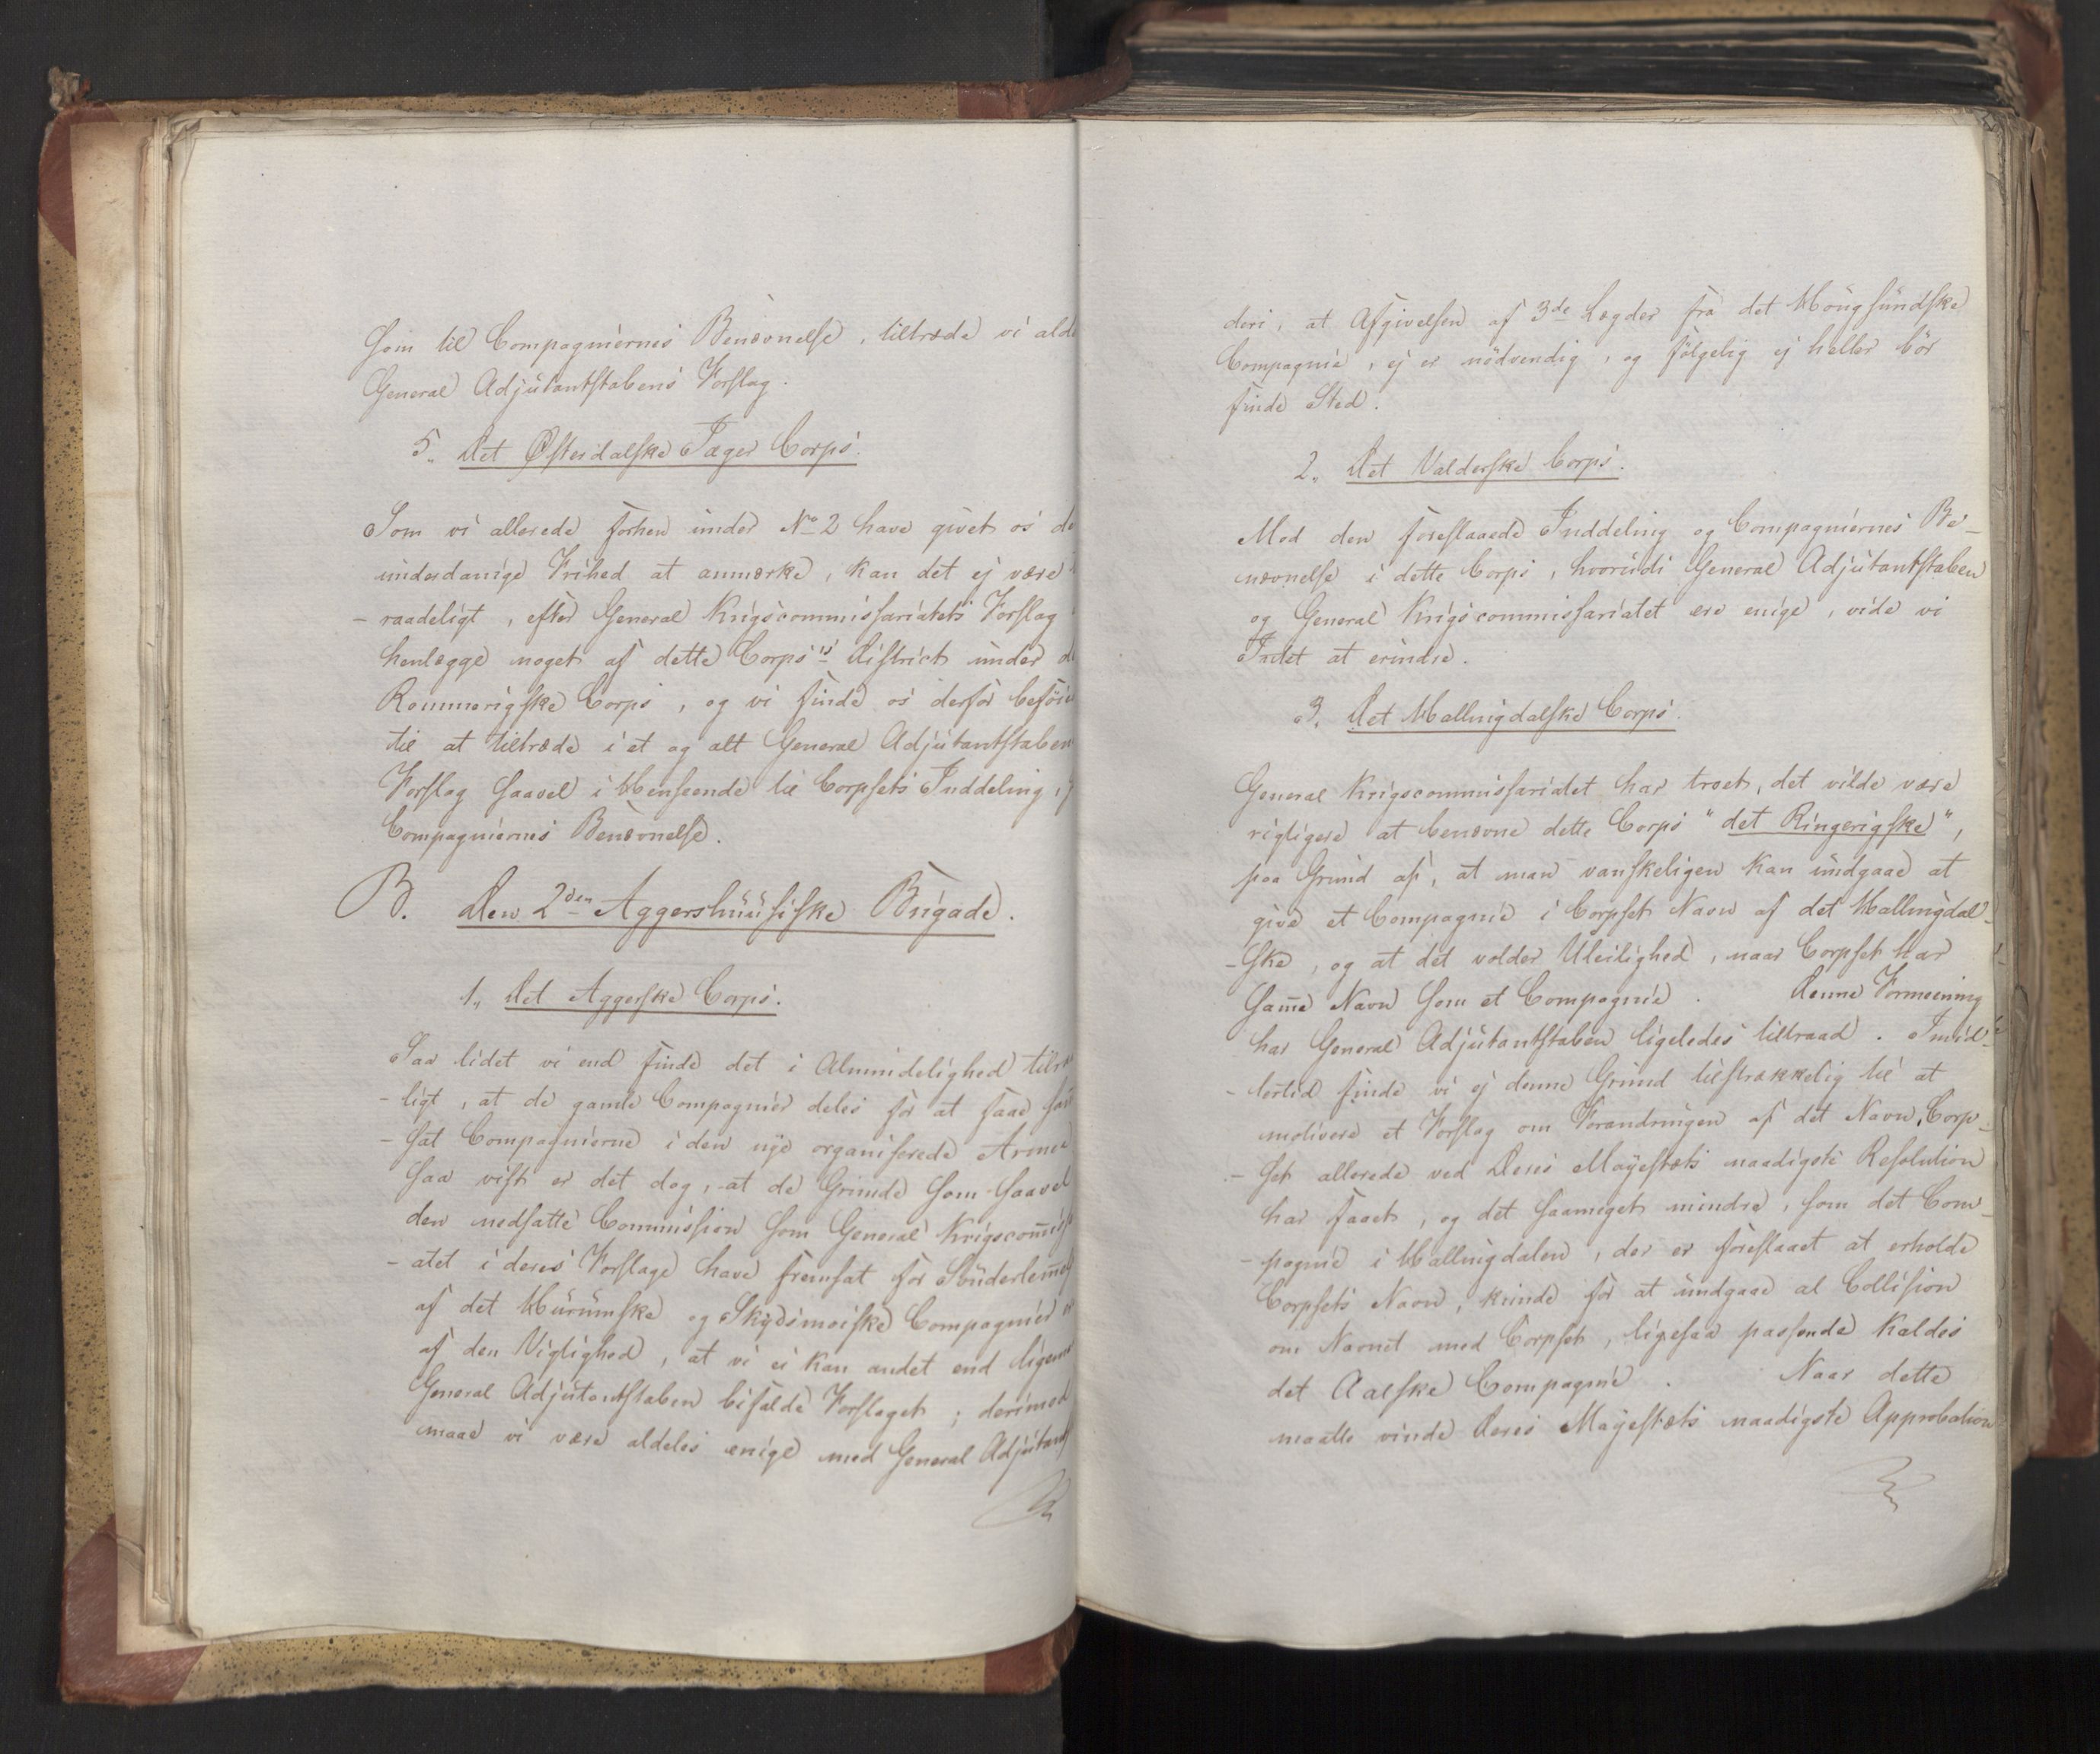 som til Compagniernes Benævnelse, tiltræde vi alde
General Adjutantstabens Forslag.
5. Det Østerdalske Jæger Corps.
Som vi allerede forhen under No 2 have givet os de
underdanige Frihed at anmærke, kan det ej være
- raadeligt, efter General Krigscommissariatets Forslag
henlægge noget af dette Corps's District under d
Rommerigske Corps, og vi finde os derfor beføie
til at tiltræde i et og alt General Adjutantstaben
Forslag saavel i Henseende til Corpsets Inddeling,
Compagniernes Benævnelse.
B. Den 2den Aggershuusiske Brigade.
1. Det Aggerske Corps.
Saa lidet vi end finde det i Almindelighed tilr
- ligt, at de gamle Compagnier deles for at faae
- sat Compagnierne i den nye organiserede Armee
saa vist er det dog, at de Grunde som saavel
den nedsatte Commission som General Krigscom̄iss
- atet i deres Forslage have fremsat for Sønderlem̄el
af det Hurumske og Skydsmoiske Compagnier
af den Vigtighed, at vi ei kan andet end ligesom
General Adjutantstaben bifalde Forslaget; derimod
maae vi være aldeles enige med General Adjutant
deri, at Afgivelsen af 3de Lægder fra det Hougsundske
Compagnie, ej er nødvendig, og følgelig ej heller bør
finde Sted.
2. Det Valderske Corps.
Mod den foreslaaede Inddeling og Compagniernes Be-
nævnelse i dette Corps, hvorudi General Adjutantstaben
og General Krigscommissariatet ere enige, vide vi
Intet at erindre.
3. Det Hallingdalske Corps.
General Krigscommissariatet har troet, det vilde være
rigtigere at benævne dette Corps "det Ringerigske",
paa Grund af, at man vanskeligen kan undgaae at
give et Compagnie i Corpset Navn af det Hallingdal-
-ske, og at det volder Uleilighed, naar Corpset har
sam̄e Navn som et Compagnie. Denne Formeening
har General Adjutantstaben ligeledes tiltraad. Imid-
- lertid finde vi ej denne Grund tilstrækkelig til at
motivere et Forslag om Forandringen af det Navn, Corp-
- set allerede ved Deres Mayestæts naadigste Resolution
har faaet, og det saameget mindre, som det Com-
- pagnie i Hallingdalen, der er foreslaaet at erholde
Corpsets Navn, kunde for at undgaae al Collision
om Navnet med Corpset, ligesaa passende kaldes
det Aalske Compagnie. Naar dette
maatte vinde Deres Mayestæts naadigste Approbation